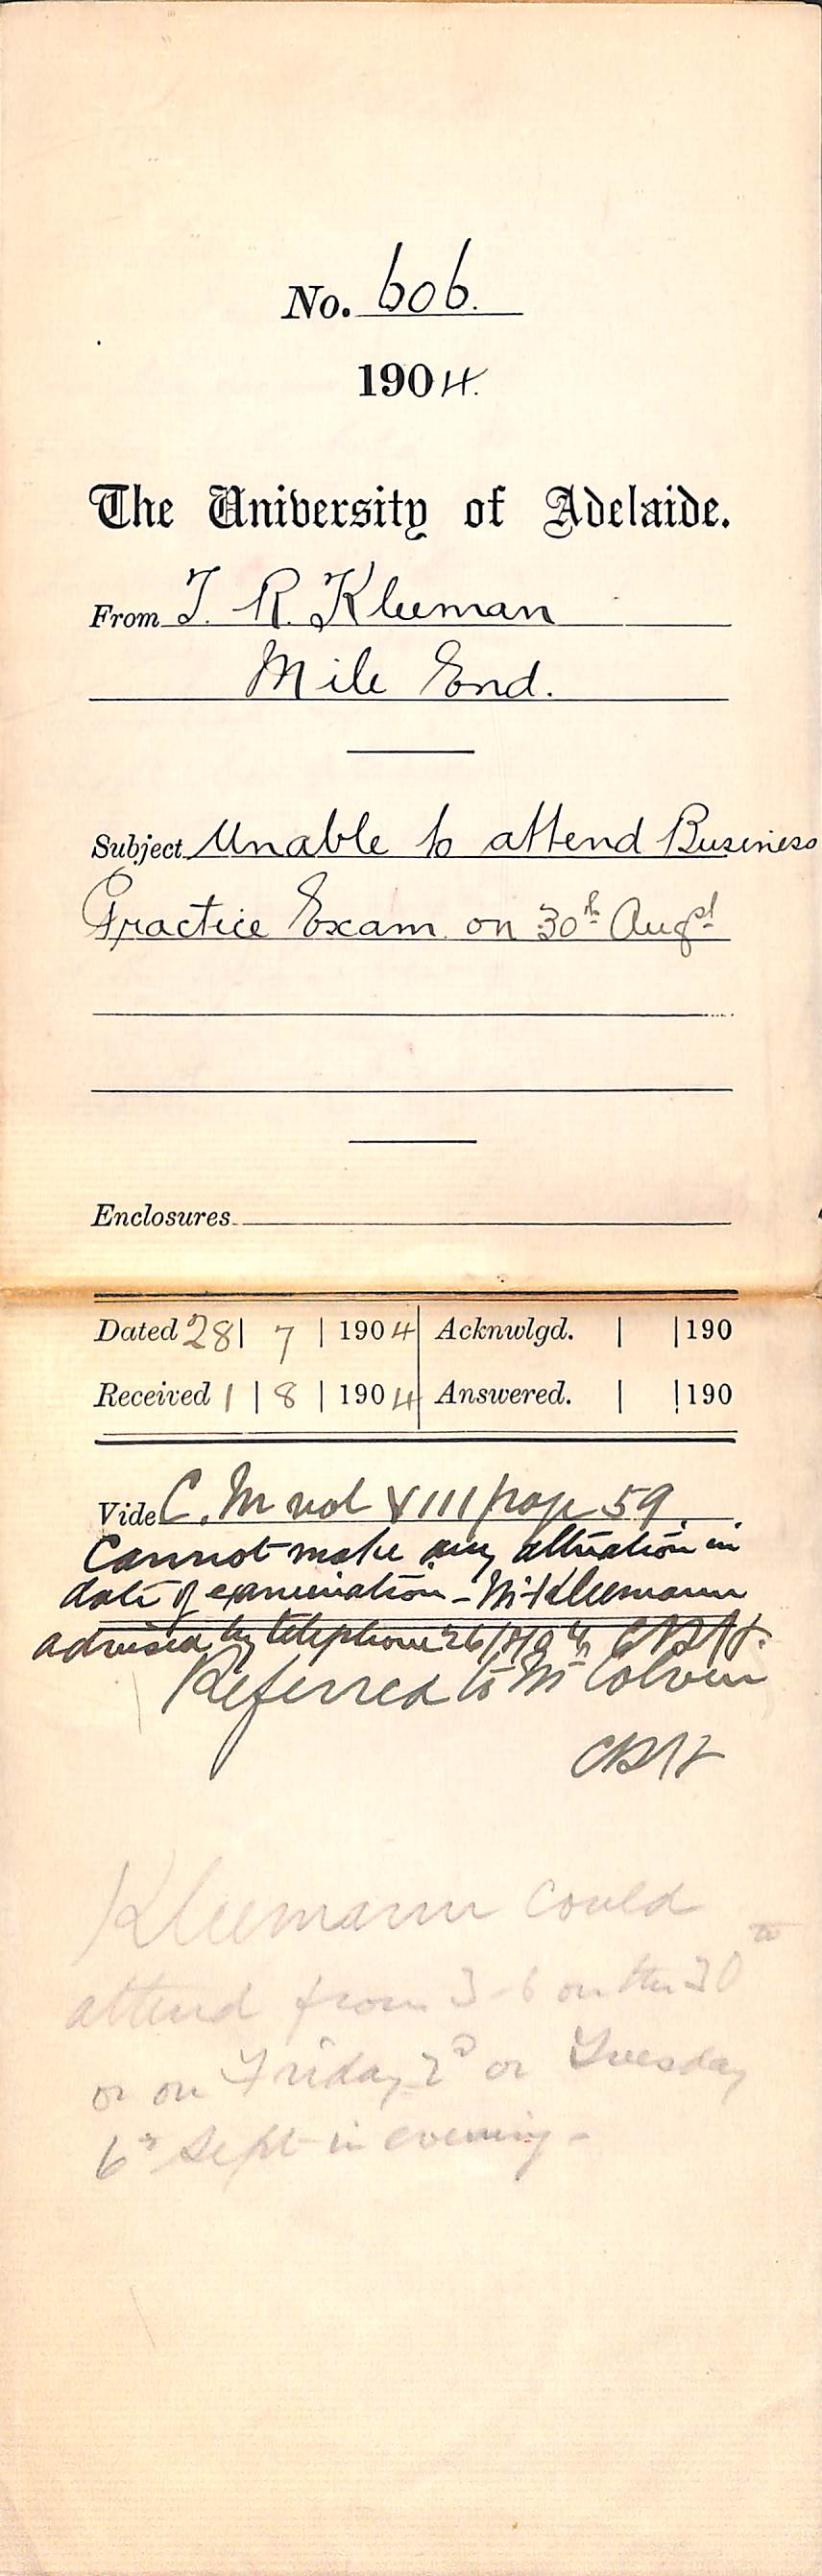 No. 606.
1904.
The University of Adelaide.
From T. R. Kleeman
Mile End.
Subject Unable to attend Business
Practice Exam. on 30th Augst
Enclosures
Dated 28 | 7 | 1904 Acknwlgd. | | 190
Received 1 | 8 | 1904 Answered. | | 190
Vide C. M vol XIII page 59.
Cannot make any alteration in
date of examination - Mr Kleemann
advised by telephone 26/8/04 CRH.
Referred to Mr Colvin
CRH
Kleemann could
attend from 3-6 on the 30th
or on Friday 2d or Tuesday
6th Sept in evening -